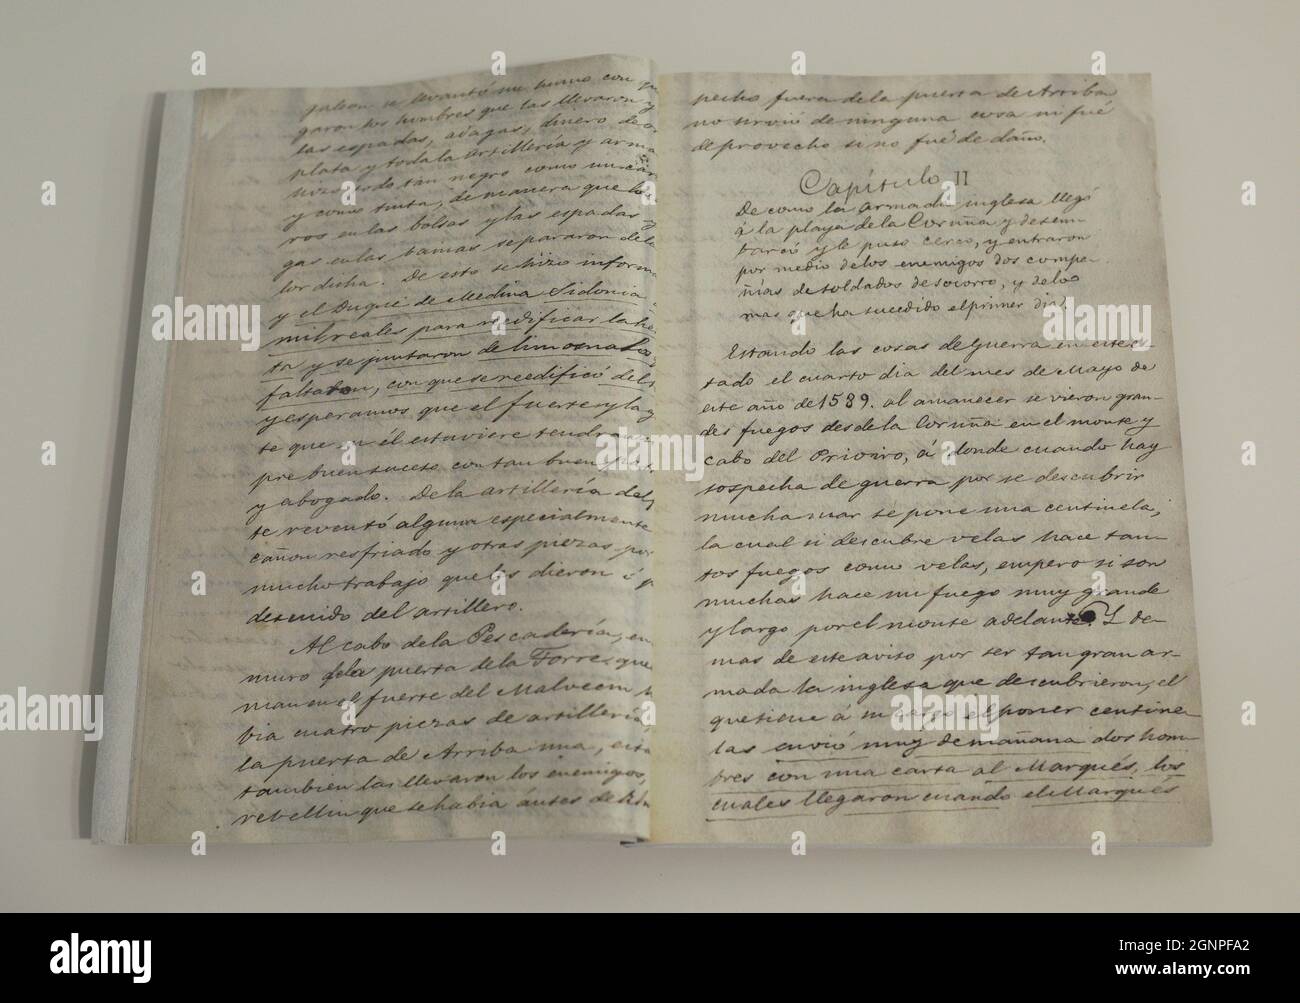 garon los hombres que las llevaron y
las espadas, adagas, dinero de o
plata y toda la artillería y arma
y como tinta, de manera que los
ros en las bolsas y las espadas y
gas en las bainas se pararon de la
lor dicha. De esto se hizo informa
y el Duque de Medina Sidonia
mil reales para reedificar la he
ta y se juntaron de limosna los
faltaban, con que se reedificó del
y esperamos que el fuerte y la g
te que en él estuviere tendrá
pre buen suceso con tan buen
y abogado. De la artillería de
te reventó alguna especialmente
cañon resfriado y otras piezas por
mucho trabajo que les dieron ó
descuido del artillero.
Al cabo de la Pescadería, en
muro de la puerta de la Torre, que
man en el fuerte del Malvecin h
bia cuatro piezas de artillería
la puerta de Arriba una, esta
tambien las llevaron los enemigos,
rebellin que se habia ántes de
pecho fuera de la puerta de Arriba
no sirvió de ninguna cosa ni fué
de provecho si no fué de daño.
Capítulo II
De como la armada inglesa llegó
á la playa de la Coruña y desem
barcó y le puso cerco, y entraron
por medio de los enemigos dos compa-
ñías de soldados de socorro, y de lo
mas que ha sucedido el primer dia.
Estando las cosas de guerra en este es-
tado el cuarto dia del mes de Mayo de
este año de 1589. al amanecer se vieron gran-
des fuegos desde la Coruña en el monte y
cabo del Prioiro, á donde cuando hay
sospecha de guerra por se descubrir
mucha mar se pone una centinela,
la cual si descubre velas hace tan-
tos fuegos como velas, empero si son
muchas hace un fuego muy grande
y largo por el monte adelante. Y de-
mas de este aviso por ser tan gran ar-
mada la inglesa que descubrieron, el
que tiene á su cargo el poner centine-
las envió muy de mañana dos hom-
bres con una carta al Marqués, los
cuales llegaron cuando el Marqués
alamy
Image ID: 2GNPFA2
www.alamy.com